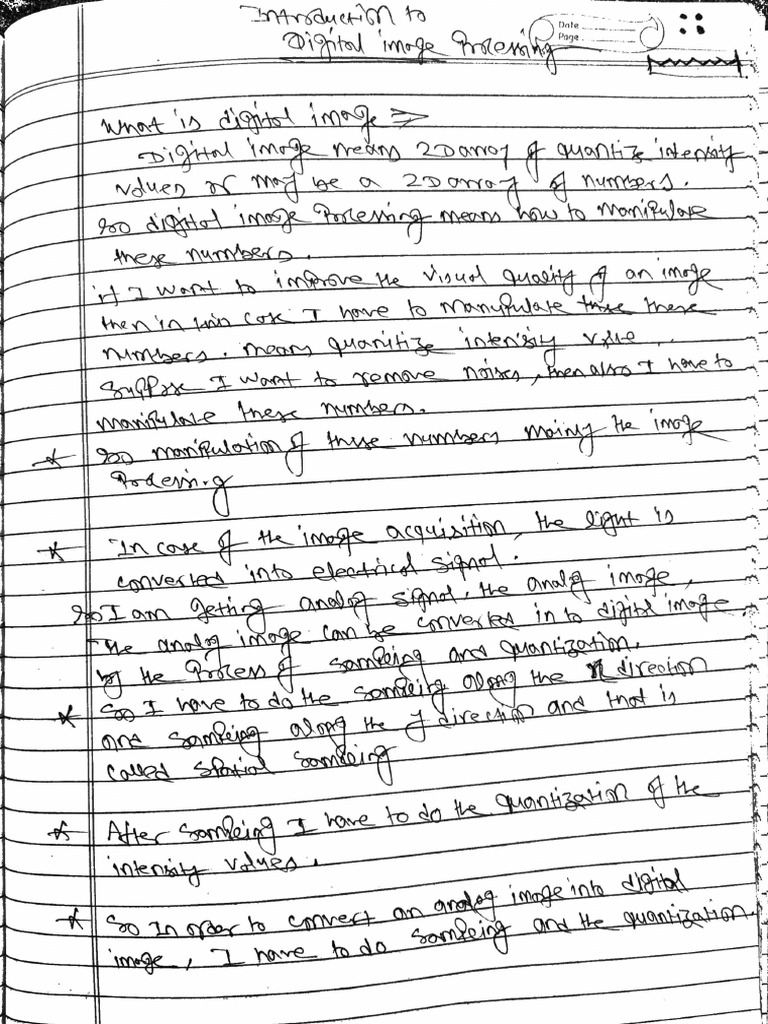 Introduction to
Digital image Processing
Date
Page
What is digital image =>
Digital image means 2D array of quantize intensity
values or may be a 2D array of numbers.
So digital image Processing means how to manipulate
these numbers.
if I want to improve the visual quality of an image
then in this case I have to manipulate these these
numbers. means quanitize intensity value.
Suppose I want to remove noises, then also I have to
manipulate these numbers.
* So manipulation of these numbers mainly the image
Processing
* In case of the image acquisition, the light is
converted into electrical signal.
So I am getting analog signal, the analog image,
The analog image can be converted in to digital image
by the Process of sampling and quantization.
* So I have to do the sampling along the x direction
and sampling along the y direction and that is
called spatial sampling
* After sampling I have to do the quantization of the
intensity values.
* So In order to convert an analog image into digital
image, I have to do sampling and the quantization.